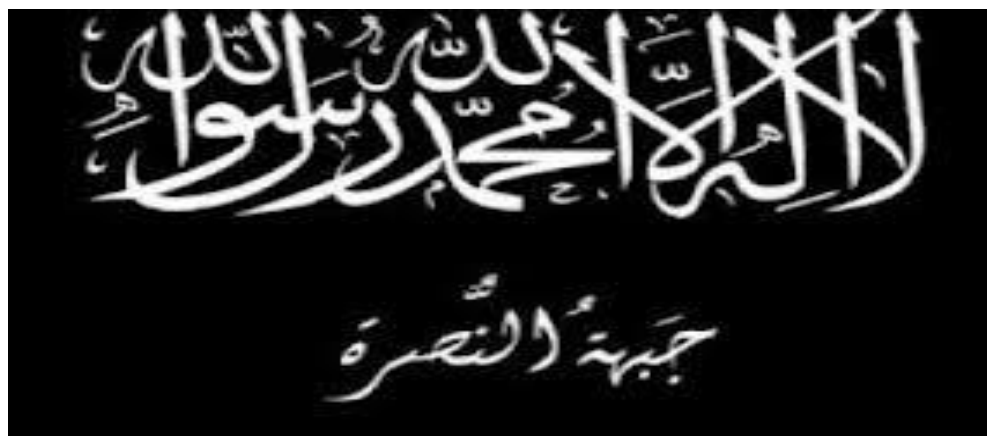 لا إله إلا الله محمد رسول الله
جَبهةُ النُّصرَة